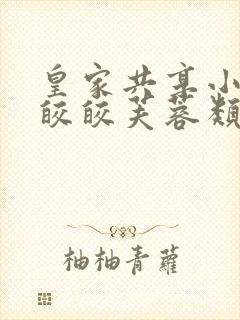 皇家共享小
皎皎芙蓉類
柚柚青蘿